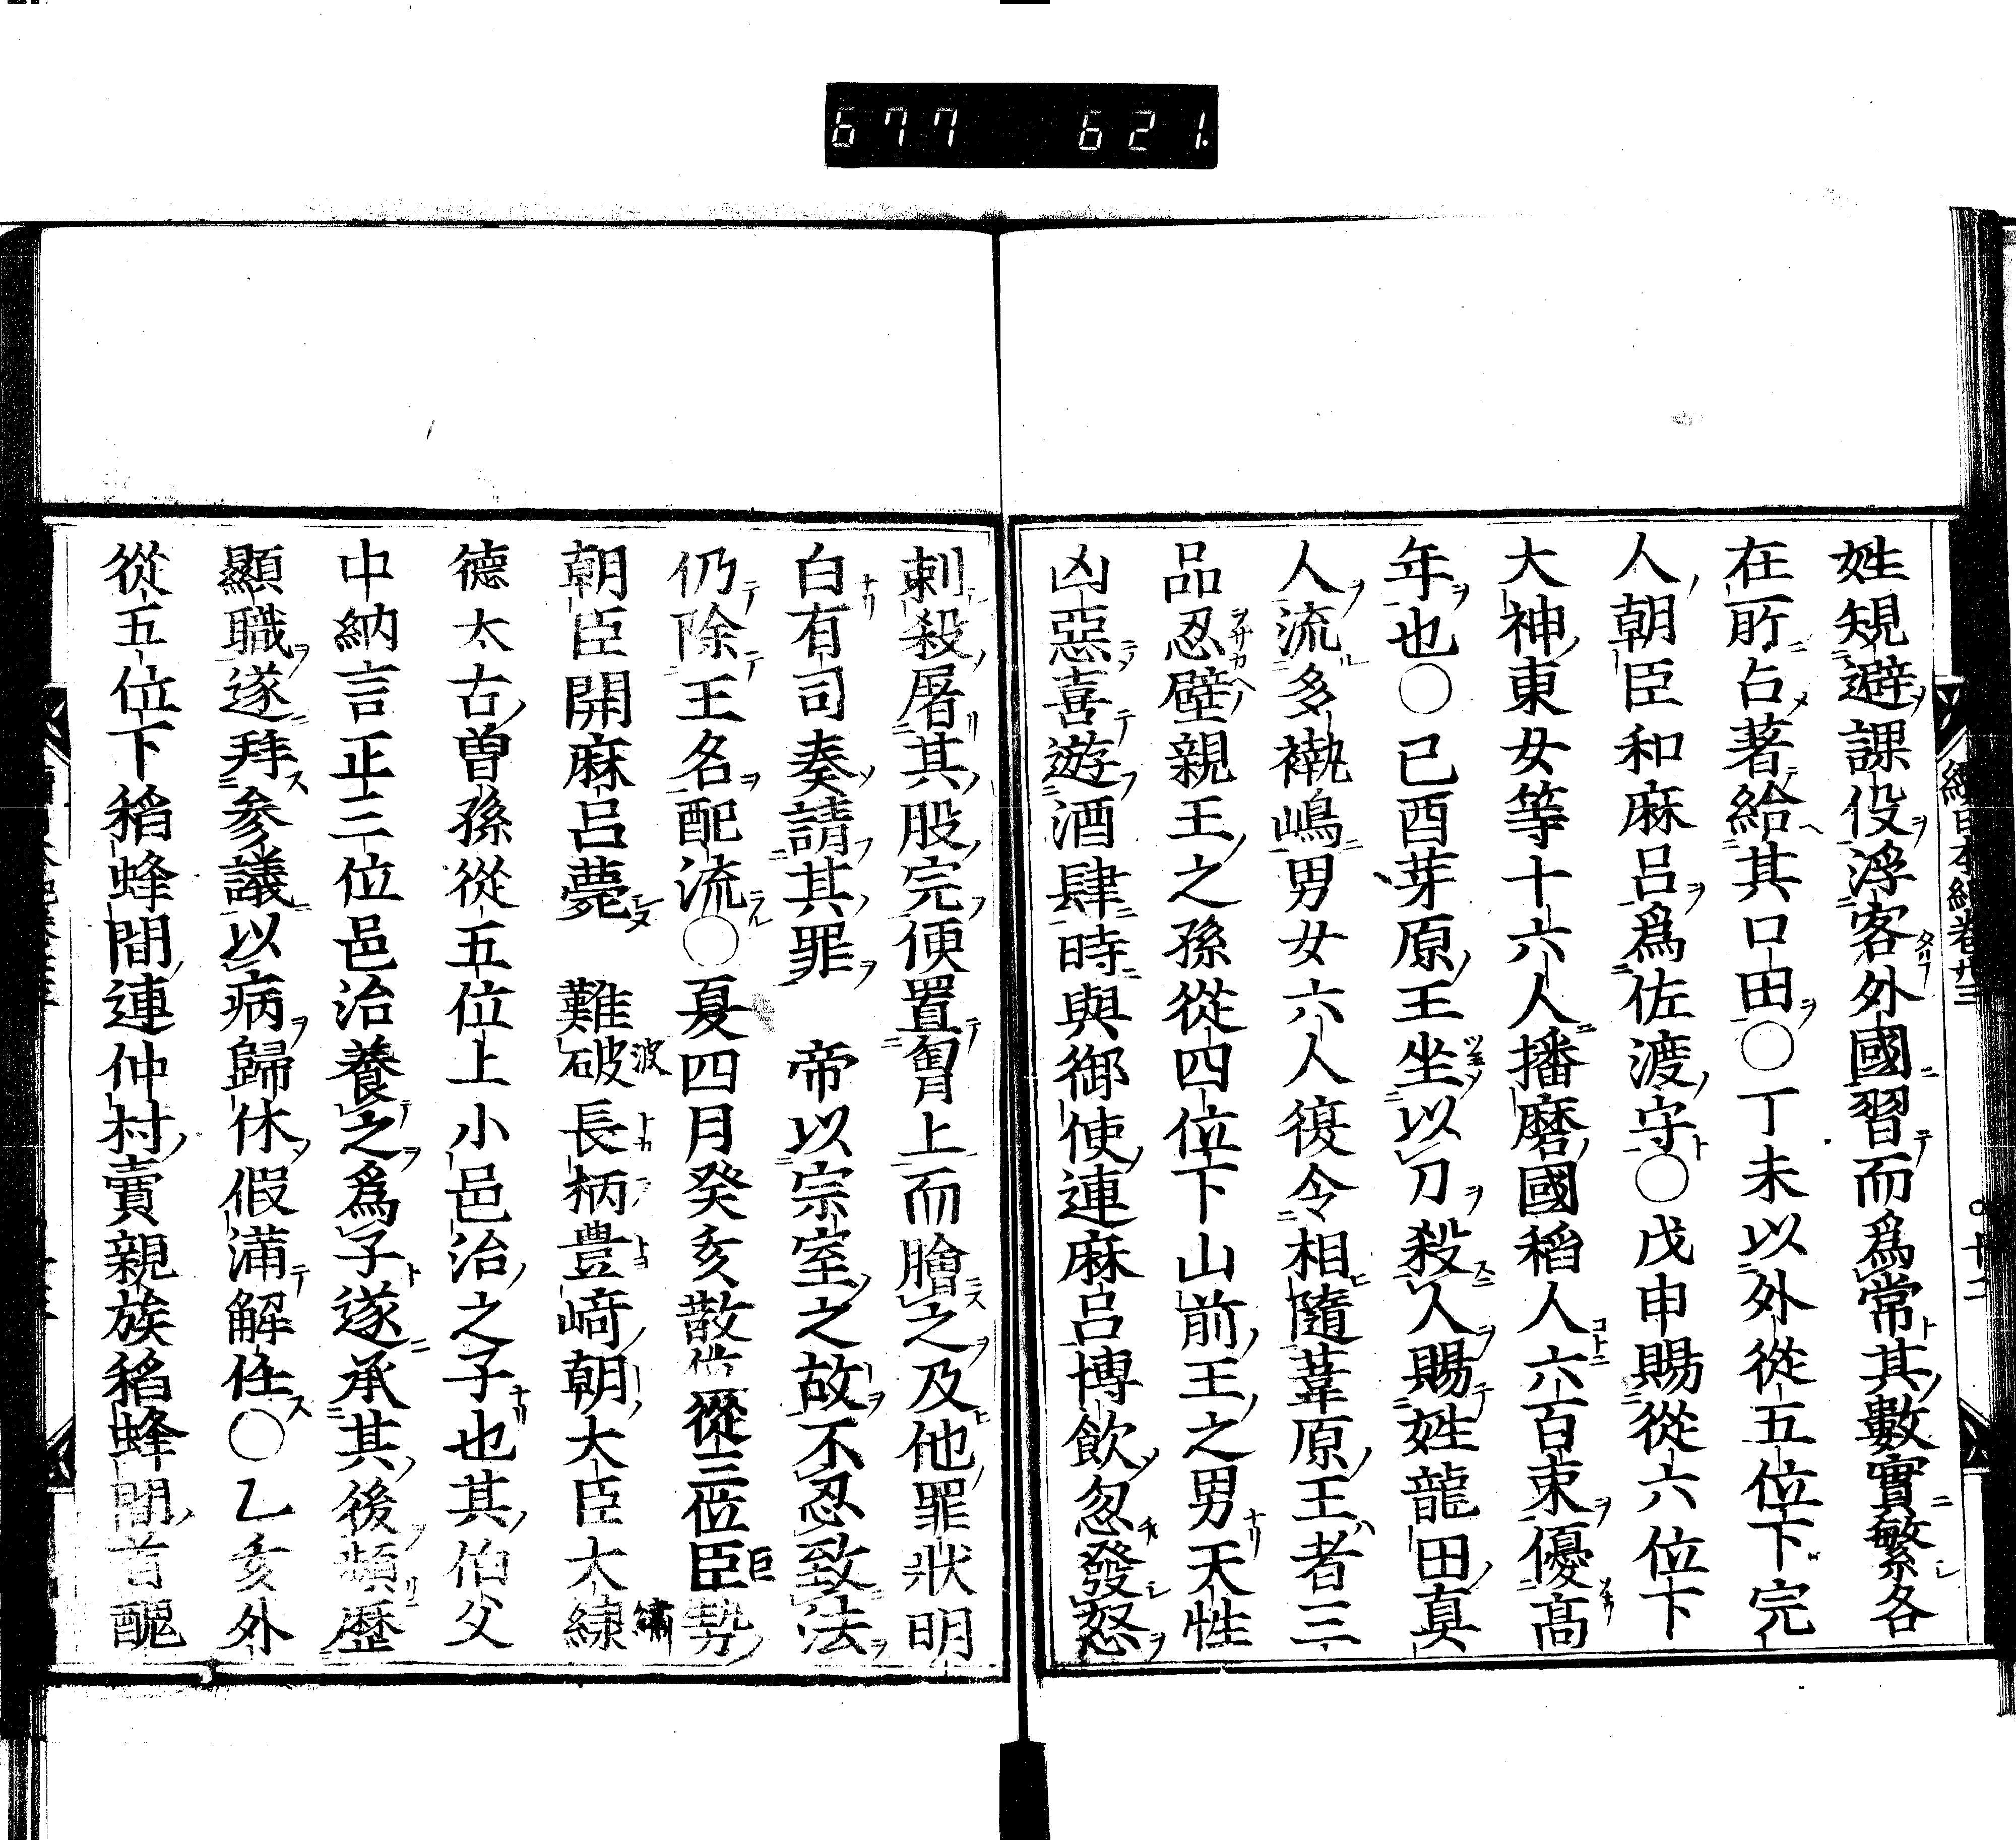 677 621.
續日本紀卷廿三
十二
姓規避課役浮客外國習而爲常其數實繁各
在所占著給其口田○丁未以外從五位下完
人朝臣和麻呂爲佐渡守○戊申賜從六位下
大神東女等十六人播磨國稻人六百束優高
年也○己酉芽原王坐以刀殺人賜姓龍田真
人流多褹嶋男女六人復令相隨葦原王者三
品忍壁親王之孫從四位下山前王之男天性
凶惡喜遊酒肆時與御使連麻呂博飲忽發怒
刺殺屠其股完便置胷上而膾之及他罪狀明
白有司奏請其罪 帝以宗室之故不忍致法
仍除王名配流○夏四月癸亥散位從三位臣勢
朝臣開麻呂薨 難破長柄豊﨑朝大臣大練
德太古曾孫從五位上小邑治之子也其伯父
中納言正三位邑治養之爲子遂承其後頻歷
顯職遂拜參議以病歸休假滿解任○乙亥外
從五位下稻蜂間連仲村賣親族稻蜂間首醜